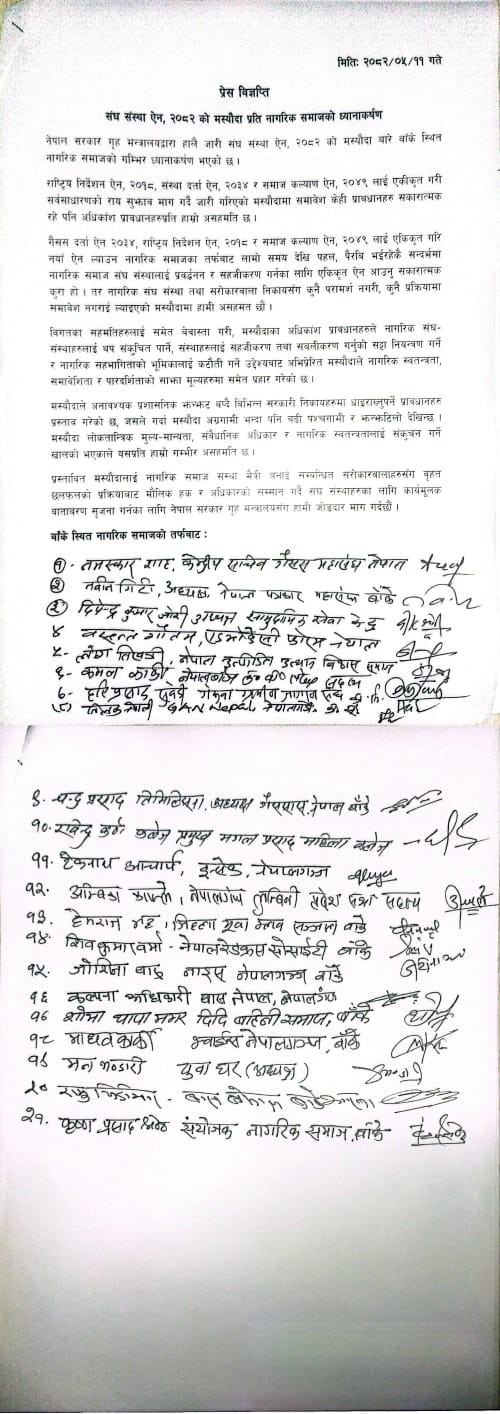 मितिः २०८२/०५/११ गते
प्रेस विज्ञप्ति
संघ संस्था ऐन, २०८२ को मस्यौदा प्रति नागरिक समाजको ध्यानाकर्षण
नेपाल सरकार गृह मन्त्रालयद्वारा हालै जारी संघ संस्था ऐन, २०८२ को मस्यौदा बारे बाँके स्थित
नागरिक समाजको गम्भिर ध्यानाकर्षण भएको छ ।
राष्ट्रिय निर्देशन ऐन, २०१८, संस्था दर्ता ऐन, २०३४ र समाज कल्याण ऐन, २०४९ लाई एकीकृत गरी
सर्वसाधारणको राय सुझाव माग गर्दै जारी गरिएको मस्यौदामा समावेश केही प्रावधानहरु सकारात्मक
रहे पनि अधिकांश प्रावधानहरुप्रति हाम्रो असहमति छ ।
गैसस दर्ता ऐन २०३४, राष्ट्रिय निर्देशन ऐन, २०१८ र समाज कल्याण ऐन, २०४९ लाई एकिकृत गरि
नयाँ ऐन ल्याउन नागरिक समाजका तर्फबाट लामो समय देखि पहल, पैरवि भईरहेकै सन्दर्भमा
नागरिक समाज संघ संस्थालाई प्रवर्द्धनन र सहजीकरण गर्नका लागि एकिकृत ऐन आउनु सकारात्मक
कुरा हो । तर नागरिक संघ संस्था तथा सरोकारवाला निकायसंग कुनै परामर्श नगरी, कुनै प्रक्रियामा
समावेश नगराई ल्याइएको मस्यौदामा हामी असहमत छौ ।
विगतका सहमतिहरुलाई समेत बेवास्ता गरी, मस्यौदाका अधिकांश प्रावधानहरुले नागरिक संघ-
संस्थाहरुलाई थप संकुचित पार्ने, संस्थाहरुलाई सहजीकरण तथा सवलीकरण गर्नुको सट्टा नियन्त्रण गर्ने
र नागरिक सहभागिताको भूमिकालाई कटौती गर्ने उद्देश्यबाट अभिप्रेरित मस्यौदाले नागरिक स्वतन्त्रता,
समावेशिता र पारदर्शिताको साझा मूल्यहरुमा समेत प्रहार गरेको छ ।
मस्यौदाले अनावश्यक प्रशासनिक झन्झट थप्दै विभिन्न सरकारी निकायहरुमा धाइराख्नुपर्ने प्रावधानहरु
प्रस्ताव गरेको छ, जसले गर्दा मस्यौदा अग्रगामी भन्दा पनि बढी पश्चगामी र झन्झटिलो देखिन्छ ।
मस्यौदा लोकतान्त्रिक मुल्य-मान्यता, संवैधानिक अधिकार र नागरिक स्वतन्त्रतालाई संकुचन गर्ने
खालको भएकाले यसप्रति हाम्रो गम्भीर असहमति छ ।
प्रस्तावित मस्यौदालाई नागरिक समाज संस्था मैत्री बनाई सम्बन्धित सरोकारवालाहरुसँग वृहत
छलफलको प्रक्रियाबाट मौलिक हक र अधिकारको सम्मान गर्दै संघ संस्थाहरुका लागि कार्यमूलक
वातावरण सृजना गर्नका लागि नेपाल सरकार गृह मन्त्रालयसंग हामी जोडदार माग गर्दछौं ।
बाँके स्थित नागरिक समाजको तर्फबाट :
१. नमस्कार शाह, केन्द्रीय सचिव गैसस महासंघ नेपाल
२ नवीन गिरी, अध्यक्ष नेपाल पत्रकार महासंघ बाँके
३ दिपेन्द्र कुमार जोशी अध्यक्ष सामुदायिक सेवा केन्द्र
४ वसन्त गौतम, एडभोकेसी फोरम नेपाल
५-
६- कमल कार्की, नेपालगंज
७- हरि प्रसाद
८) GAN Nepal, नेपालगंज
९. चन्द्र प्रसाद तिमिल्सिना, अध्यक्ष गैससास, नेपाल बाँके
१०. प्रमुख मंगल प्रसाद महिला
११. टेकनाथ आचार्य, इन्सेक, नेपालगञ्ज
१२. अम्बिका काफ्ले, नेपालगंज लुम्बिनी प्रदेश सभा सदस्य
१३. हेमराज भट्ट, जिल्ला युवा क्लब सञ्जाल बाँके
१४. शिव कुमार वर्मा - नेपाल रेडक्रस सोसाईटी बाँके
१५. नेपालगञ्ज बाँके
१६ कल्पना अधिकारी वास नेपाल, नेपालगंज
१७ थापा मगर दिदि बहिनी समाज, बाँके
१८ माधव कार्की नेपालगञ्ज, बाँके
१९ मन भण्डारी युवा घर (अध्यक्ष)
२०
२१. कृष्ण प्रसाद श्रेष्ठ संयोजक नागरिक समाज, बाँके